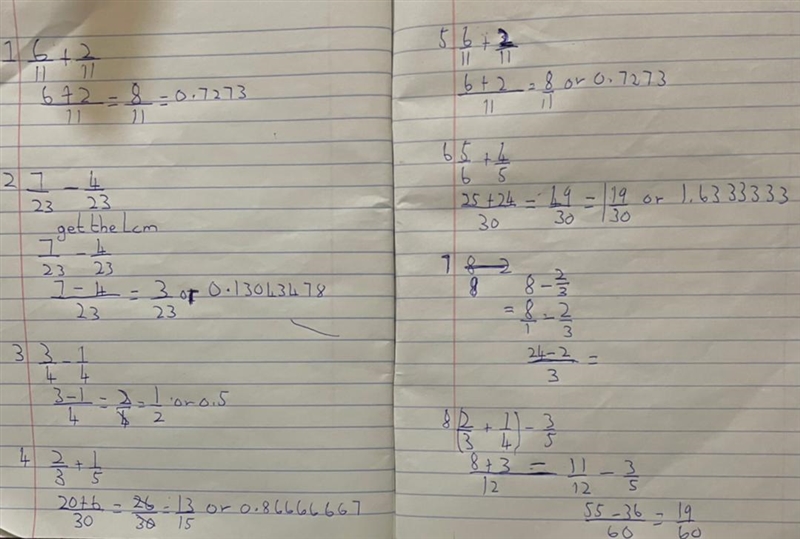 1 6/11 + 2/11
6+2/11 = 8/11 = 0.7273
2 7/23 - 4/23
get the Lcm
7/23 - 4/23
7-4/23 = 3/23 or 0.13043478
3 3/4 - 1/4
3-1/4 = 2/4 = 1/2 or 0.5
4 2/3 + 1/5
20+6/30 = 26/30 = 13/15 or 0.86666667
5 6/11 + 2/11
6+2/11 = 8/11 or 0.7273
6 5/6 + 4/5
25+24/30 = 49/30 = 1 19/30 or 1.6333333
7 8-2/8
8 - 2/3
= 8/1 - 2/3
24-2/3 =
8 (2/3 + 1/4) - 3/5
8+3/12 = 11/12 - 3/5
55-36/60 = 19/60